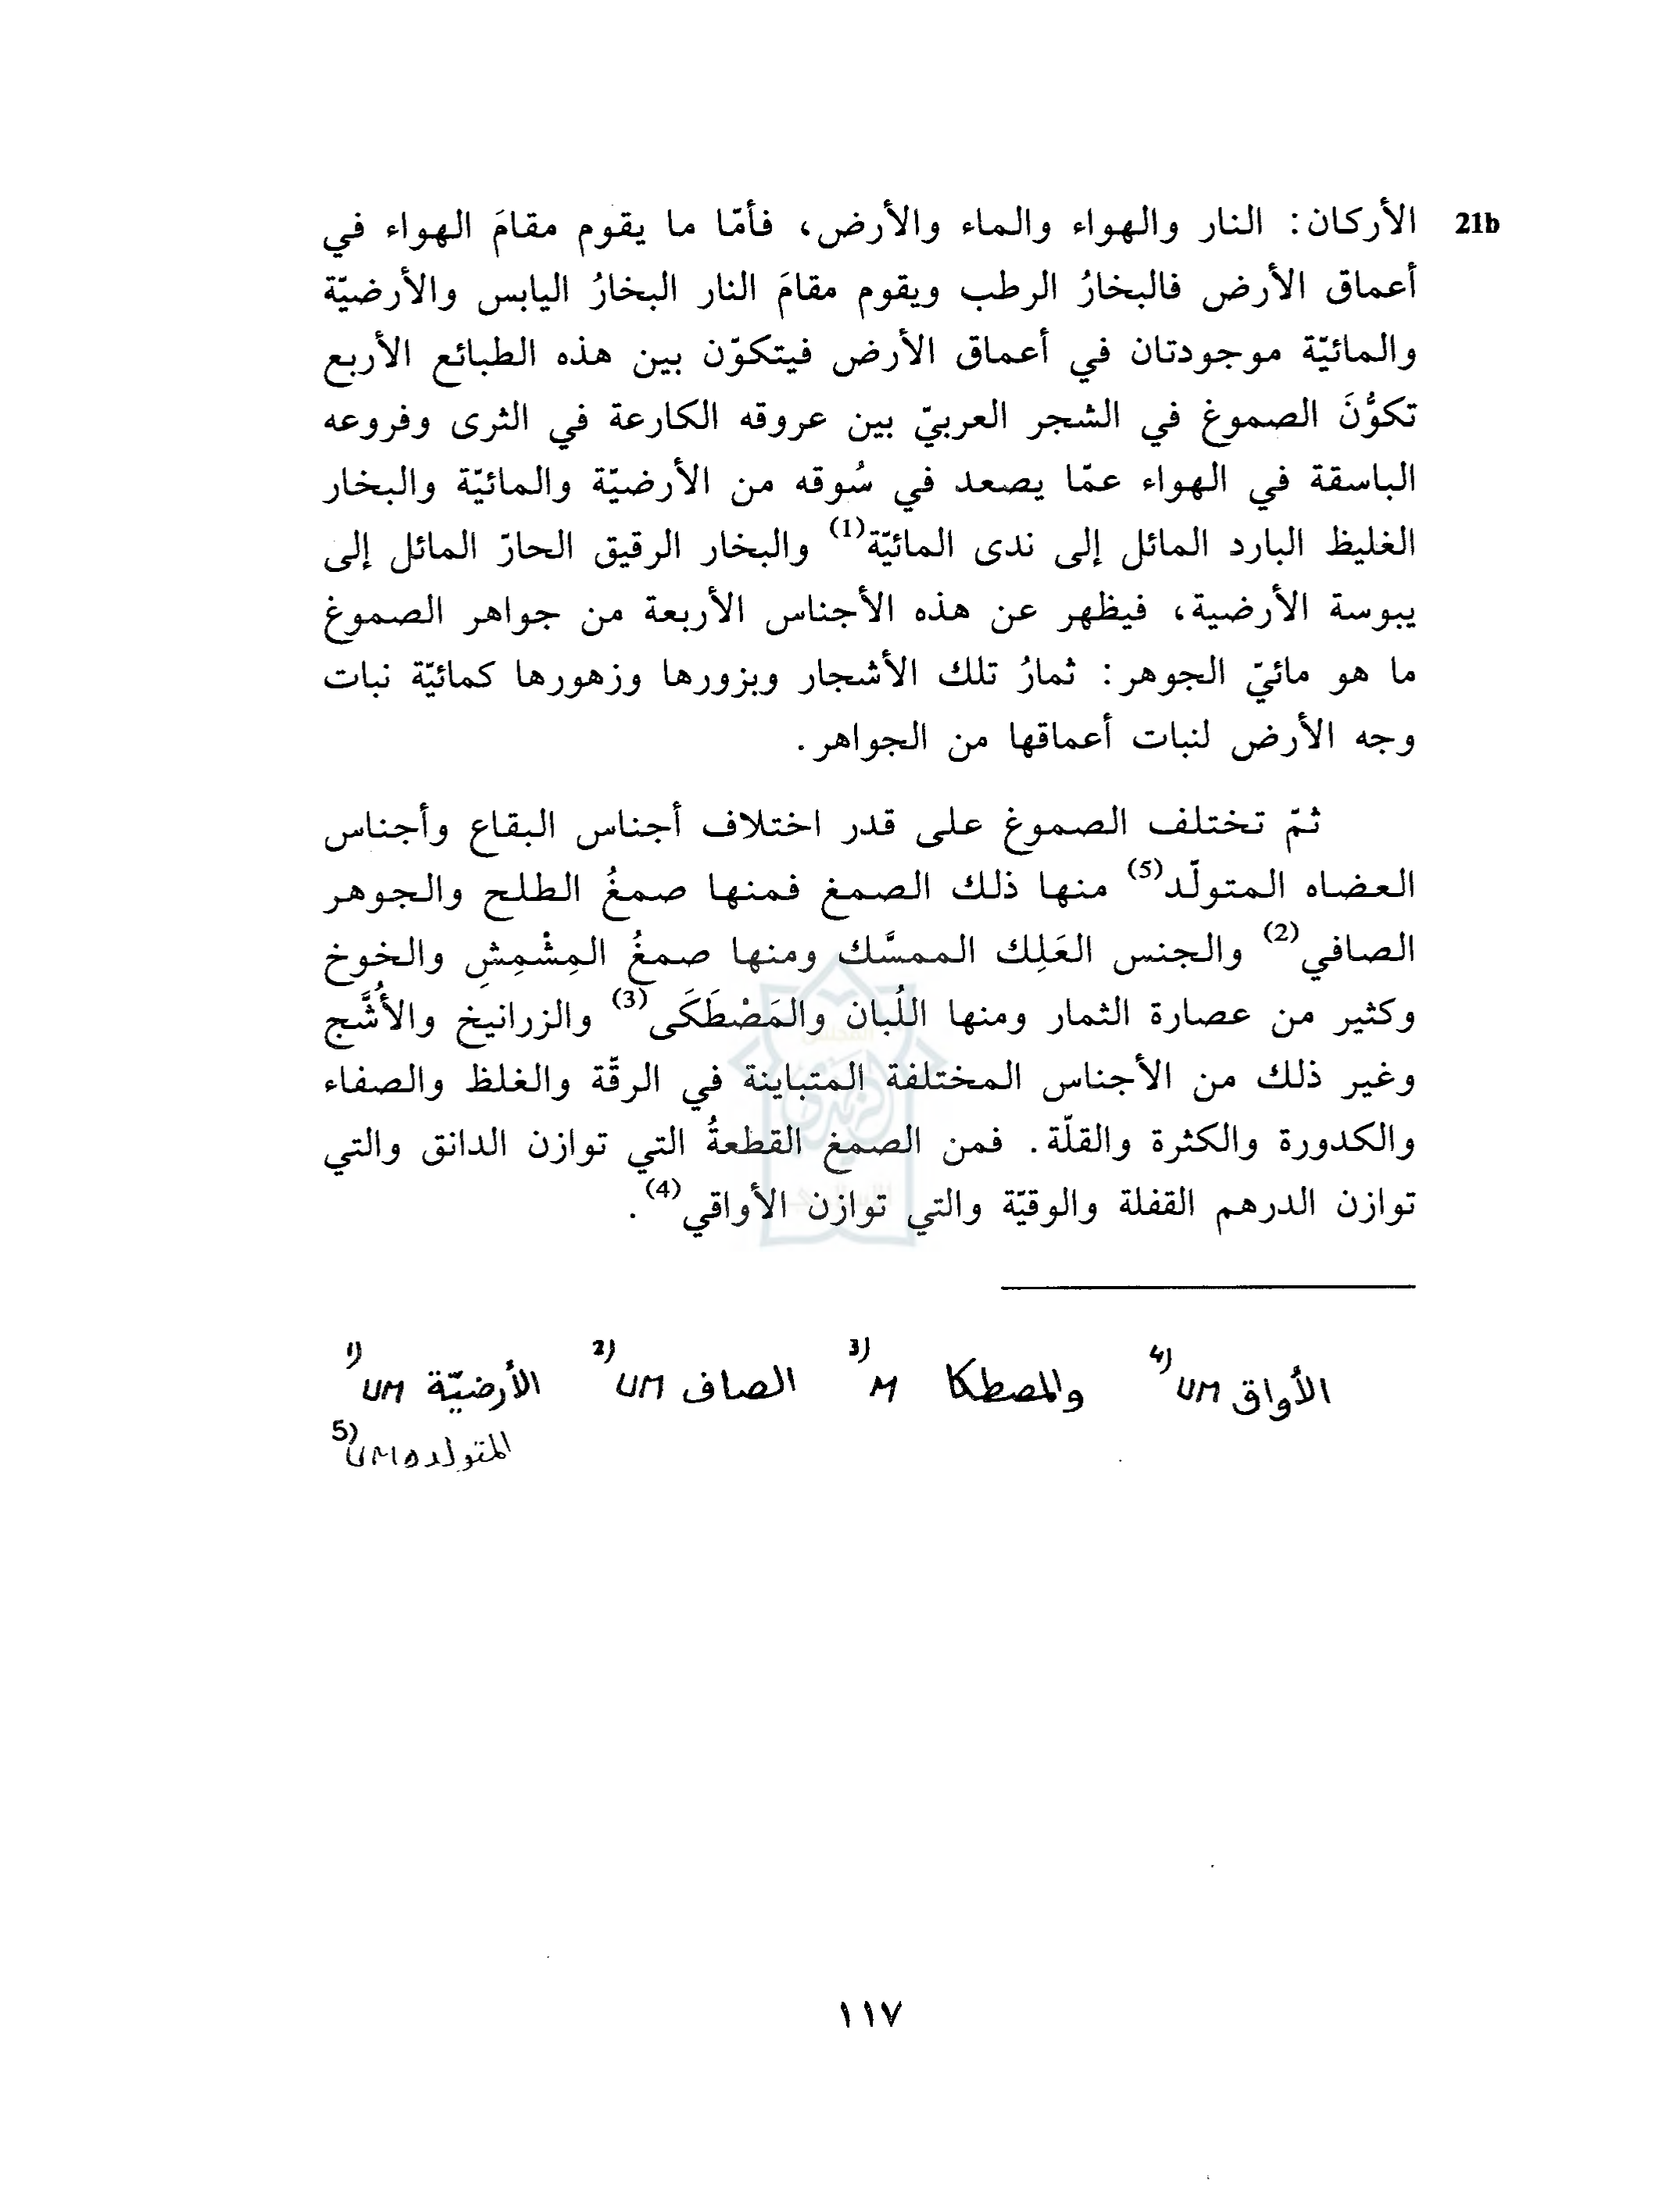 21b الأركان: النار والهواء والماء والأرض، فأمّا ما يقوم مقامَ الهواء في
أعماق الأرض فالبخارُ الرطب ويقوم مقامَ النار البخارُ اليابس والأرضيّة
والمائيّة موجودتان في أعماق الأرض فيتكوّن بين هذه الطبائع الأربع
تكوُّنَ الصموغ في الشجر العربيّ بين عروقه الكارعة في الثرى وفروعه
الباسقة في الهواء عمّا يصعد في سُوقه من الأرضيّة والمائيّة والبخار
الغليظ البارد المائل إلى ندى المائيّة(1) والبخار الرقيق الحارّ المائل إلى
يبوسة الأرضية، فيظهر عن هذه الأجناس الأربعة من جواهر الصموغ
ما هو مائيّ الجوهر: ثمارُ تلك الأشجار وبزورها وزهورها كمائيّة نبات
وجه الأرض لنبات أعماقها من الجواهر.
ثمّ تختلف الصموغ على قدر اختلاف أجناس البقاع وأجناس
العضاه المتولّد(5) منها ذلك الصمغ فمنها صمغُ الطلح والجوهر
الصافي(2) والجنس العَلِك الممسَّك ومنها صمغُ المِشْمِشِ والخوخ
وكثير من عصارة الثمار ومنها اللُبان والمَصْطَكَى(3) والزرانيخ والأُشَّج
وغير ذلك من الأجناس المختلفة المتباينة في الرقّة والغلظ والصفاء
والكدورة والكثرة والقلّة. فمن الصمغ القطعةُ التي توازن الدانق والتي
توازن الدرهم القفلة والوقيّة والتي توازن الأواقي(4).
1) UM الأرضيّة 2) UM الصاف 3) M والمصطكا 4) UM الأواق
5) UM المتولده
١١٧